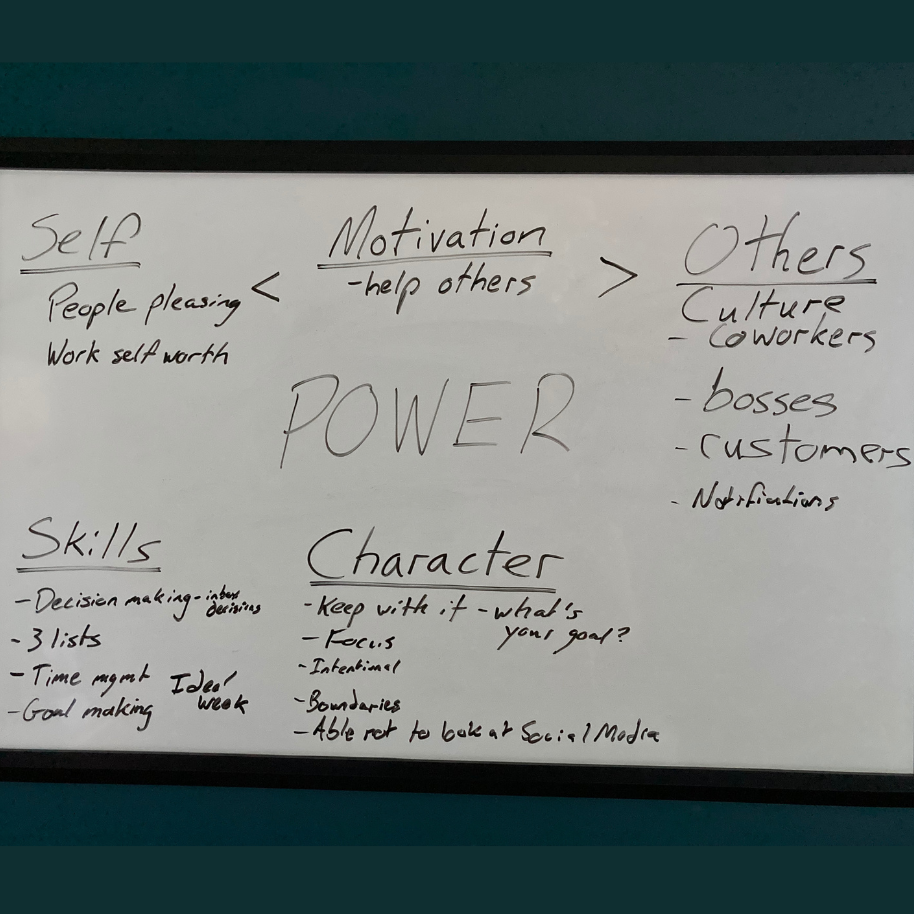 Self
People pleasing
Work self worth
<
Motivation
-help others
>
Others
Culture
- Coworkers
- bosses
- customers
- Notifiations
POWER
Skills
- Decision making - inbox
decisions
- 3 lists
- Time mgmt
- Goal making
Ideal
week
Character
- Keep with it - what's
your goal?
- Focus
- Intentional
- Boundaries
- Able not to look at Social Media